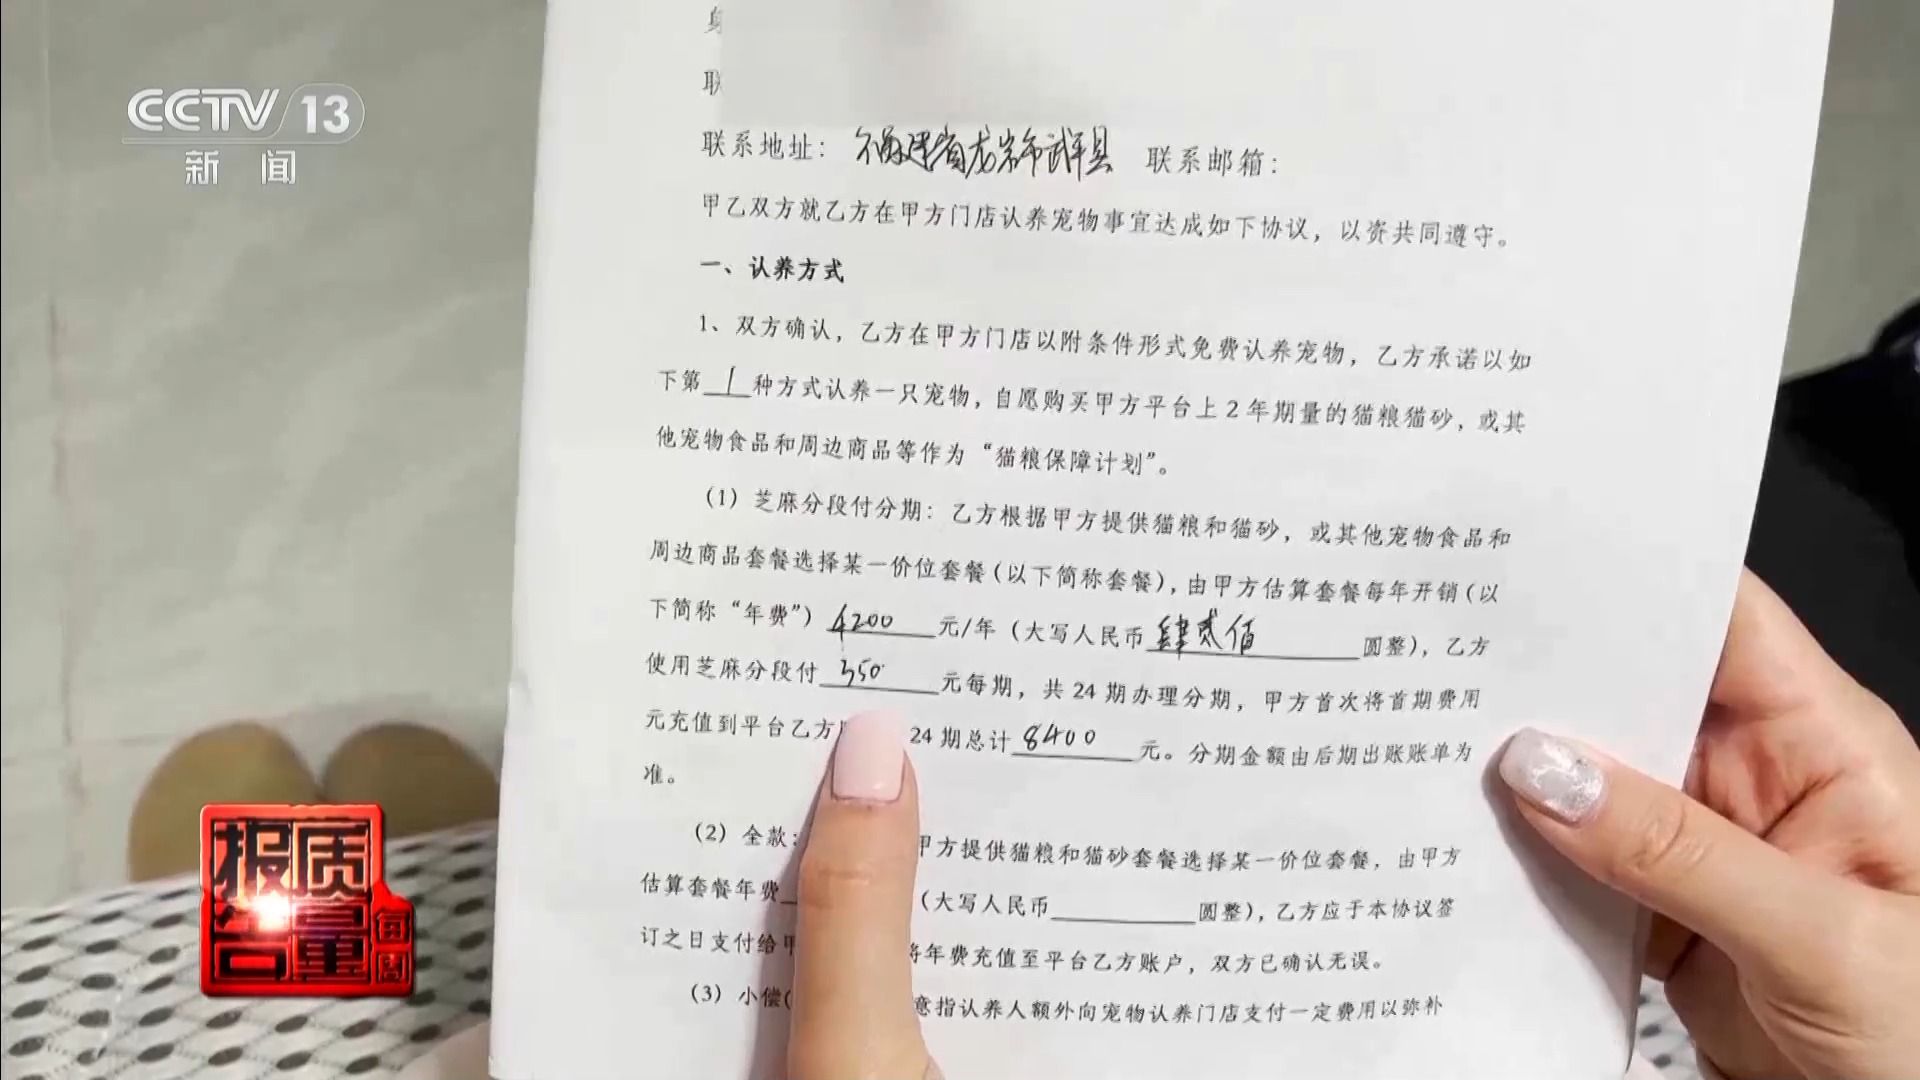 CCTV 13
新闻
联系地址：福建省龙岩市武平县 联系邮箱：
甲乙双方就乙方在甲方门店认养宠物事宜达成如下协议，以资共同遵守。
一、认养方式
1、双方确认，乙方在甲方门店以附条件形式免费认养宠物，乙方承诺以如
下第1种方式认养一只宠物，自愿购买甲方平台上2年期量的猫粮猫砂，或其
他宠物食品和周边商品等作为“猫粮保障计划”。
（1）芝麻分段付分期：乙方根据甲方提供猫粮和猫砂，或其他宠物食品和
周边商品套餐选择某一价位套餐（以下简称套餐），由甲方估算套餐每年开销（以
下简称“年费”）4200元/年（大写人民币肆贰佰圆整），乙方
使用芝麻分段付350元每期，共24期办理分期，甲方首次将首期费用
元充值到平台乙方 24期总计8400元。分期金额由后期出账账单为
准。
（2）全款： 甲方提供猫粮和猫砂套餐选择某一价位套餐，由甲方
估算套餐年费 （大写人民币 圆整），乙方应于本协议签
订之日支付给甲 将年费充值至平台乙方账户，双方已确认无误。
（3）小偿（ 意指认养人额外向宠物认养门店支付一定费用以弥补
每周质量报告